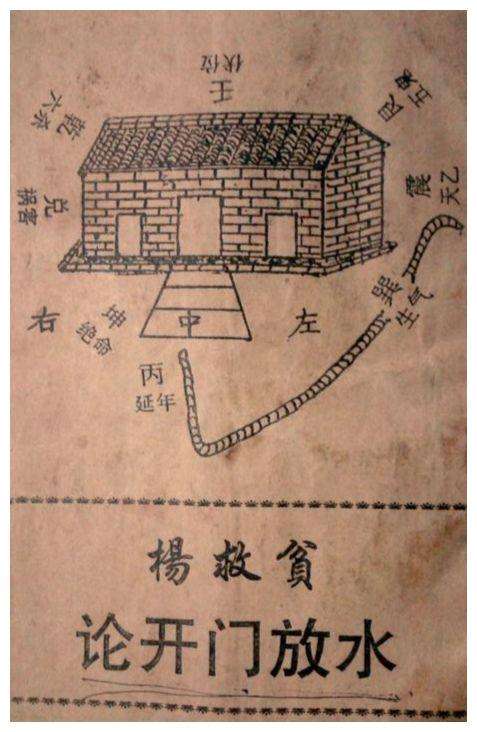 伏位
壬
乾
六杀
艮
五鬼
兑
祸害
震
天乙
巽
生气
右
坤
绝命
中
左
丙
延年
楊救貧
论开门放水